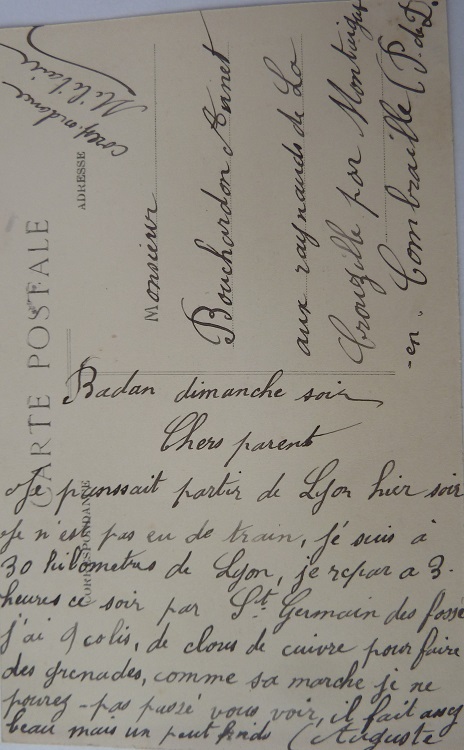 CARTE POSTALE
CORRESPONDANCE
ADRESSE
Correspondance
Militaire
Monsieur
Bouchardon Annet
aux raynauds de La
Crouzille par Montaigut
-en. Combraille (P. de D.
Badan dimanche soir
Chers parent
Je panssait partir de Lyon hier soir
Je n'est pas eu de train, je suis à
30 kilometres de Lyon, je repar a 3.
heures ce soir par St. Germain des fossé
j'ai 9 colis, de clous de cuivre pour faire
des grenades, comme sa marche je ne
pourez-pas passé vous voir, il fait assez
beau mais un peut froids (Auguste